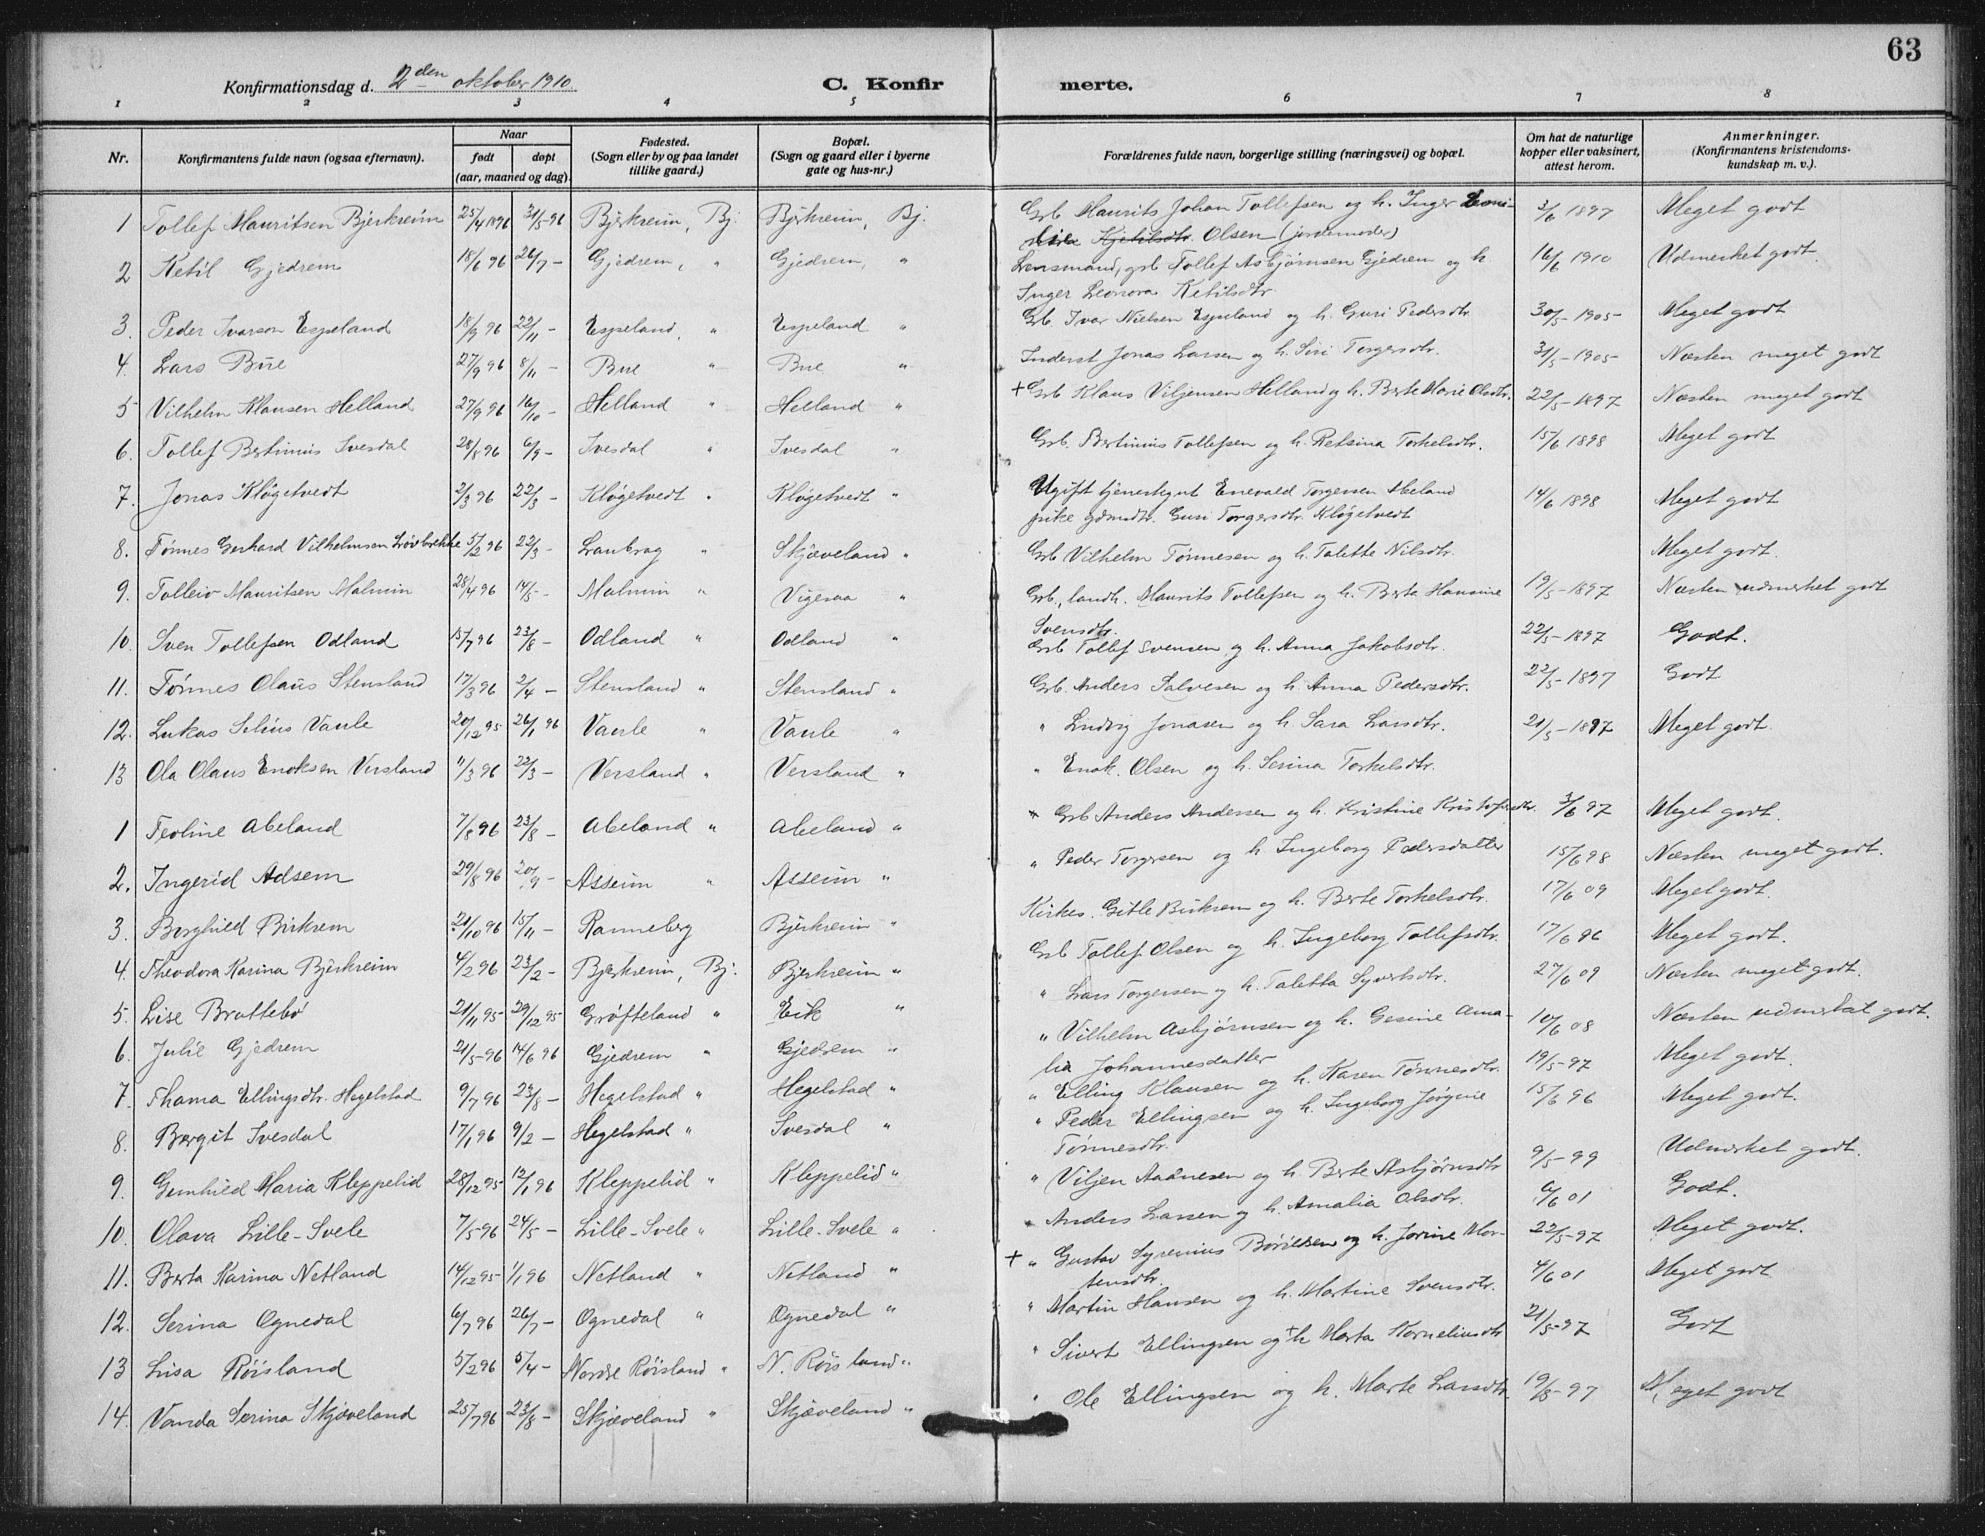 63
Konfirmationsdag d. 2den oktober 1910. C. Konfirmerte.
1 2 3 4 5 6 7 8
Nr. Konfirmantens fulde navn (ogsaa efternavn). Naar født døpt (aar, maaned og dag). Fødested. (Sogn eller by og paa landet tillike gaard.) Bopæl. (Sogn og gaard eller i byerne gate og hus-nr.) Forældrenes fulde navn, borgerlige stilling (næringsvei) og bopæl. Om hat de naturlige kopper eller vaksinert, attest herom. Anmerkninger. (Konfirmantens kristendoms-kundskap m. v.).
1 Tollef Mauritsen Bjerkreim 25/4 1896 31/5-96 Bjerkreim, Bj. Bjerkreim, Bj. Grb Maurits Johan Tollefsen og h. Inger Kjetilsdtr. Olsen (jordemoder) 3/6 1897 Meget godt
2 Ketil Gjedrem 18/6 96 26/7 - Gjedrem, " Gjedrem, " Lensmand, grb Tollef Asbjørnsen Gjedrem og h Inger Leonora Ketilsdtr 16/6 1910 Udmerket godt.
3. Peder Ivarson Espeland 18/9 96 22/11 - Espeland, " Espeland " Grb. Ivar Nielsen Espeland og h. Guri Pedersdtr. 30/5-1905- Meget godt
4. Lars Bue 27/9 96 8/11 - Bue " Bue " Inderst Jonas Larsen og h. Siri Torgersdtr. 31/5-1905- Næsten meget godt
5 Vilhelm Klausen Helland 27/9 96 16/10 - Helland " Helland " + Grb Klaus Viljensen Helland og h. Berte Marie Olsdtr. 22/5-1897 Næsten meget godt
6. Tollef Bertinius Ivesdal 28/8 96 6/9 - Ivesdal " Ivesdal " Grb. Bertinius Tollefsen og h. Retsina Torkelsdtr. 15/6 1898 Meget godt
7. Jonas Kløgetvedt 2/3 96 22/3 - Kløgetvedt " Kløgetvedt " Ugift tjenestegut Enevald Torgersen Abeland pike gdmdtr. Guri Torgersdtr. Kløgetvedt 14/6 1898 Meget godt
8. Tønnes Gerhard Vilhelmsen Løvbrekke 5/2 96 22/3 - Laubrag " Skjæveland " Grb Vilhelm Tønnesen og h. Talette Nilsdtr. Meget godt.
9. Tolleiv Mauritsen Malmin 28/4 96 14/5 - Malmin " Vigesaa " Grb, landh. Maurits Tollefsen og h. Berta Hansine Svensdtr. 19/5-1897 Næsten udmerket godt
10. Sven Tollefsen Odland 15/7 96 23/8 - Odland " Odland " Grb Tollef Svensen og h. Anna Jakobsdtr. 22/5-1897 Godt.
11. Tønnes Olaus Stensland 17/3 96 2/4 - Stensland " Stensland " Grb. Anders Salvesen og h. Anna Pedersdtr. 22/5-1897 Godt
12. Lukas Selius Vaule 20/12 95 26/1 96 Vaule " Vaule " " Ludvig Jonasen og h. Sara Larsdtr. 21/5-1897 Meget godt.
13 Ola Olaus Enoksen Versland 11/3 96 22/3 - Versland " Versland " " Enok. Olsen og h. Serina Torkelsdtr.
1 Teoline Abeland 7/8 96 23/8 - Abeland " Abeland " Grb Anders Andersen og h. Kristine Kristofersdtr. 3/6 97 Meget godt.
2. Ingerid Adsem 29/8 96 20/9 - Asseim " Asseim " " Peder Torgersen og h. Ingeborg Pedersdatter 15/6 98 Næsten meget godt.
3. Borghild Birkrem 21/10 96 15/11 - Ranneberg Bjerkreim " Kirkes. Gitle Birkrem og h. Berte Torkelsdtr. 17/6 09 Meget godt.
4. Theodora Karina Bjerkreim 4/2 96 23/2 - Bjerkreim, Bj. Bjerkreim " Grb Tollef Olsen og h. Ingeborg Tollefsdtr. 17/6 96 Meget godt.
5. Lise Brattebø 21/11 95- 29/12 95 Grøfteland " Eik " " Lars Torgersen og h. Taletta Syvertsdtr. 27/6 09 Næsten meget godt.
6. Julie Gjedrem 21/5-96 14/6 96 Gjedrem " Gjedrem " " Vilhelm Asbjørnsen og h. Gesine Amalia Johannesdatter 10/6 08 Næsten udmerket godt.
7. Thama Ellingsdtr. Hegelstad 9/7 96 23/8 - Hegelstad " Hegelstad " " Elling Klausen og h. Karen Tønnesdtr. 19/5-97 Meget godt.
8. Bergit Ivesdal 17/1 96 9/2 - Hegelstad " Ivesdal " " Peder Ellingsen og h. Ingeborg Jørgine Tønnesdtr. 15/6 96 Meget godt.
9. Gunhild Maria Kleppelid 28/12 95 12/1 96 Kleppelid " Kleppelid " " Viljen Aadnesen og h. Berte Asbjørnsdtr 9/5-99 Udmerket godt.
10. Olava Lille-Svele 7/5-96 24/5 - Lille-Svele " Lille-Svele " " Anders Larsen og h. Amalia Olsdtr. 6/6 01 Godt.
11. Berta Karina Netland 14/12 95- 1/1 96 Netland " Netland " + " Gustav Syrenius Børildsen og h. Jorine Mortensdtr. 22/5-97 Meget godt.
12. Serina Ognedal 6/7 96 26/7 - Ognedal " Ognedal " " Martin Hansen og h. Martine Svensdtr. 4/6 01 Meget godt
13 Lisa Røisland 5/2 96 5/4 - Nordre Røisland " N. Røisland " " Sivert Ellingsen og +h Marta Korneliusdtr 21/5-97 Godt
14. Vanda Serina Skjæveland 25/7 96 23/8 - Skjæveland " Skjæveland " " Ole Ellingsen og h. Marte Larsdtr. 19/5-97 Meget godt